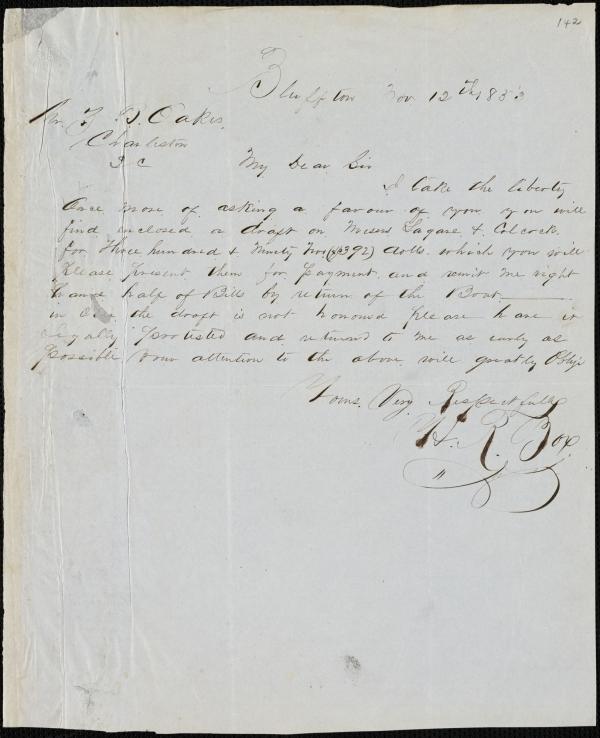 142
Bluffton Nov 12th 1853
Mr Z B. Oakes.
Charleston
S C
My Dear Sir
I take the liberty
Once more of asking a favour of you. you will
find inclosed a draft on Messrs Lagare & Colcock.
for Three hundred & Ninety Two ($392) dolls. which you will
please present them for payment. and remit me right
hand half of Bills by return of the Boat.
in Case the draft is not honoured please have it
legally protested and returnd to me as early as
possible your attention to the above will greatly Oblige
Yours. Very Respectfully
W. R. Box.